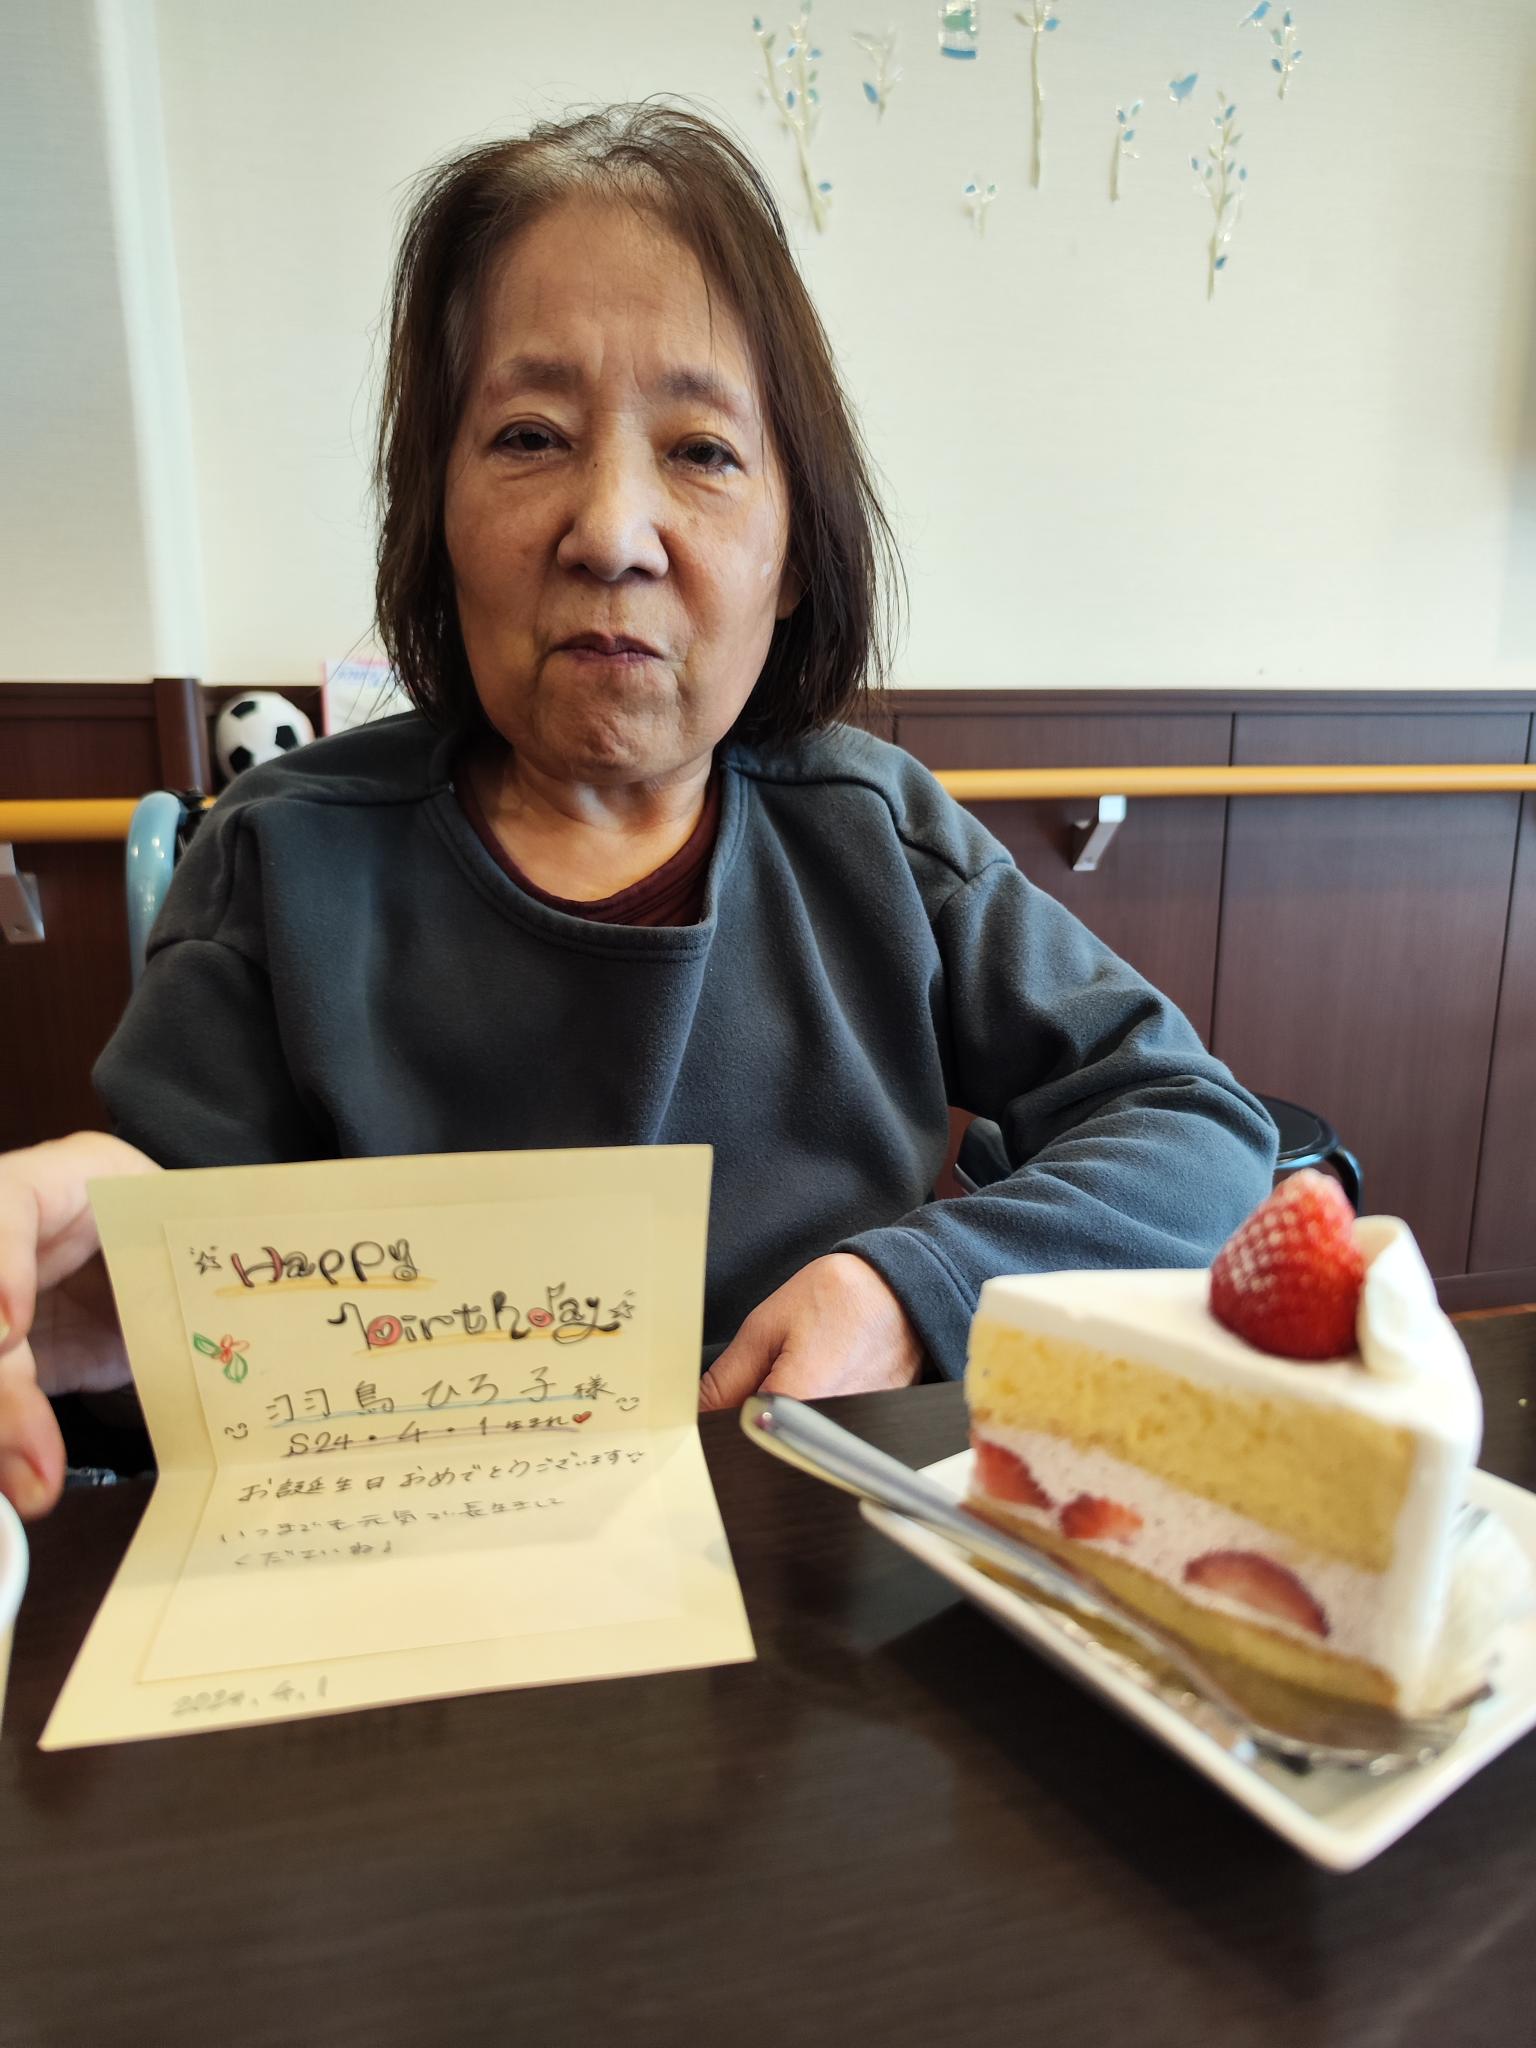 Happy
birthday
羽鳥ひろ子様
S24・4・1生まれ
お誕生日おめでとうございます
いつまでも元気で長生きして
くださいね!
2024.4.1